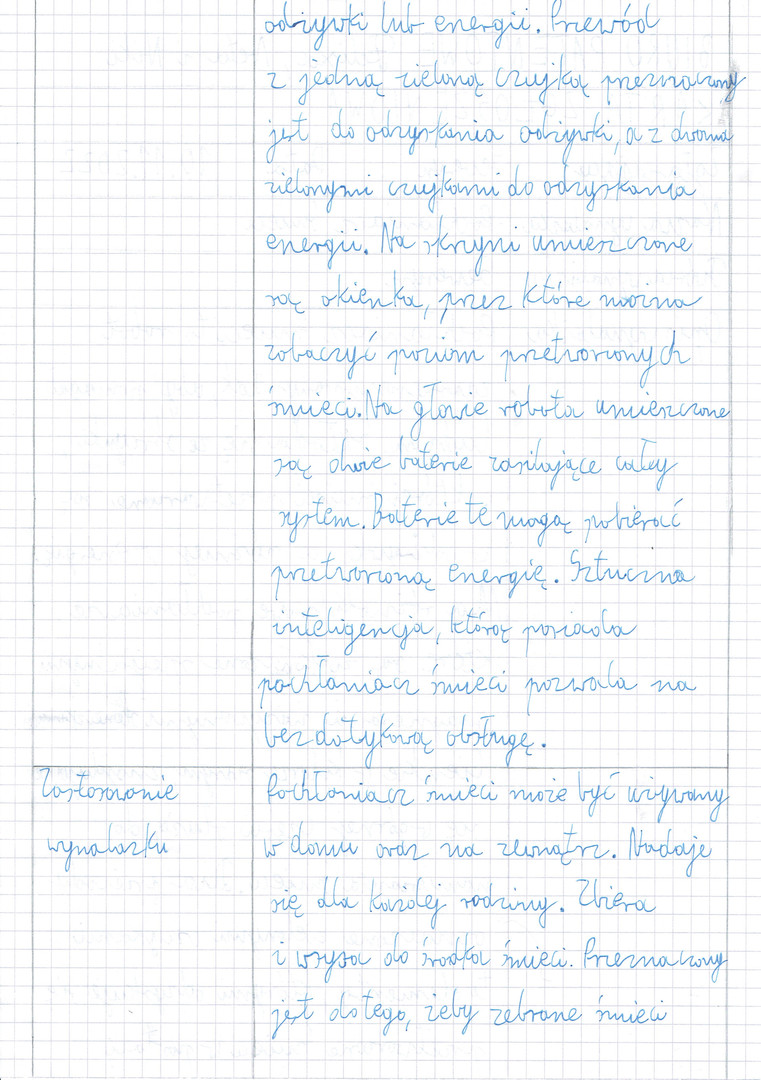 odżywki lub energii. Przewód
z jedną zieloną czujką przeznaczony
jest do odzyskania odżywki, a z dwoma
zielonymi czujkami do odzyskania
energii. Na skrzyni umieszczone
są okienka, przez które można
zobaczyć poziom przetworzonych
śmieci. Na głowie robota umieszczone
są dwie baterie zasilające cały
system. Baterie te mogą pobierać
przetworzoną energię. Sztuczna
inteligencja, którą posiada
pochłaniacz śmieci pozwala na
bezdotykową obsługę.
Zastosowanie
wynalazku
Pochłaniacz śmieci może być używany
w domu oraz na zewnątrz. Nadaje
się dla każdej rodziny. Zbiera
i wsysa do środka śmieci. Przeznaczony
jest do tego, żeby zebrane śmieci